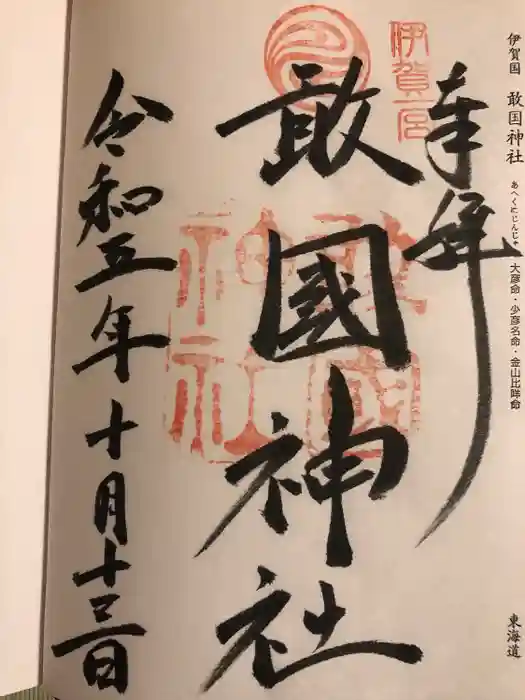 伊賀国 敢国神社 あへくにじんじゃ 大彦命・少彦名命・金山比咩命
東海道
奉拝
伊賀一宮
敢國神社
敢國神社
令和五年十月十三日